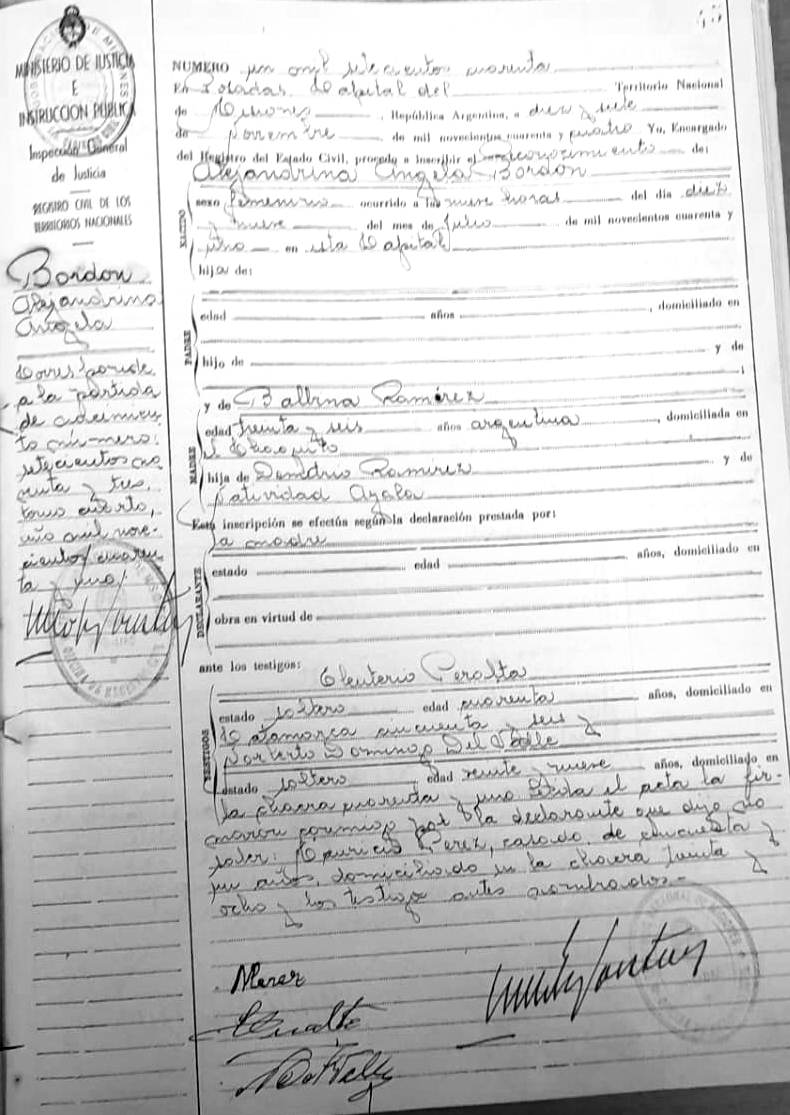 MINISTERIO DE JUSTICIA
E
INSTRUCCION PUBLICA
Inspección General
de Justicia
REGISTRO CIVIL DE LOS
TERRITORIOS NACIONALES
Bordon
Alejandrina
Angela
Corresponde
a la partida
de nacimien-
to número:
setecientos no-
venta y tres,
tomo cuarto,
año mil nove-
cientos cuaren-
ta y uno
NUMERO un mil setecientos cuarenta
En Posadas, Capital del Territorio Nacional
de Misiones, República Argentina, a diez y siete
de Noviembre de mil novecientos cuarenta y cuatro Yo, Encargado
del Registro del Estado Civil, procedo a inscribir el reconocimiento de:
Alejandrina Angela Bordon
NACIDO
sexo femenino ocurrido a las nueve horas del día diez
y nueve del mes de Julio de mil novecientos cuarenta y
uno en esta Capital
hija de:
PADRE
edad años, domiciliado en
hijo de y de
;
MADRE
y de Balbina Ramírez
edad treinta y seis años argentina, domiciliada en
el Chaquito
hija de Ramirez y de
Natividad Ayala
Esta inscripción se efectúa según la declaración prestada por:
la madre
DECLARANTE
estado edad años, domiciliado en
obra en virtud de
ante los testigos:
TESTIGOS
Eleuterio Peralta
estado soltero edad cuarenta años, domiciliado en
Catamarca cincuenta y seis y
Norberto Domingo Del Valle
estado soltero edad veinte y nueve años, domiciliado en
la chacra cuarenta y uno Leída el acta la fir-
maron conmigo por la declarante que dijo no
saber: Mauricio Perez, casado, de cincuenta y
un años, domiciliado en la chacra treinta y
ocho y los testigos antes nombrados.-